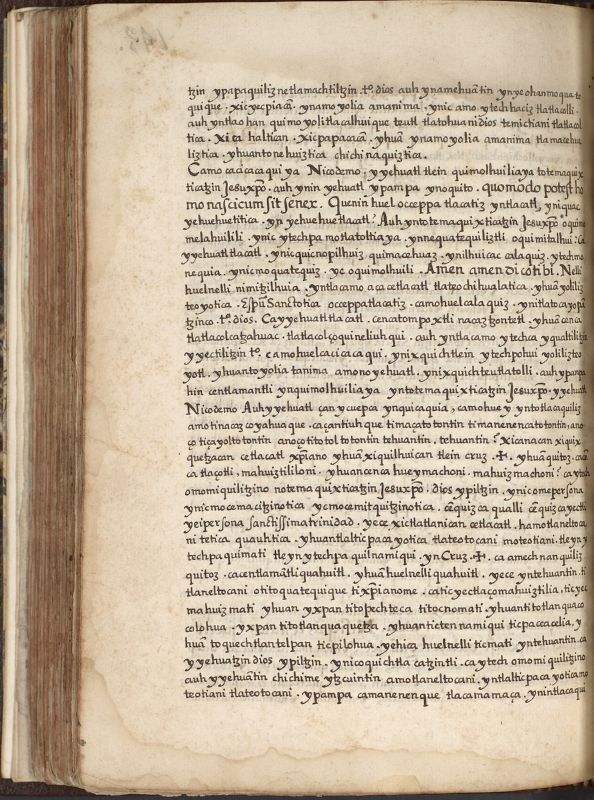 tzin ypapaquiliz netlamachtiltzin .t.º dios auh ynamehuãtin ynyeohanmoquate
quique . xicyecpiacã . ynamoyolia amanima . ynic amo ytech haciz tlatlacolli .
auh yntlaohan quimoyolitlacalhuique teutl tlatohuani dios temictiani tlatlacol
tica . xi cã haltican . xicpapacacã . yhuã ynamoyolia amanima tlamacehua
liztica . yhuantonehuiztica chichinaquiztica .
Camo cacicacaqui ya Nicodemo , yyehuatl tlein quimolhuiliaya totemaquix
ticatzin Jesuxpõ . auh ynin yehuatl ypampa ynoquito . quomodo potest ho
mo nasci cum sit senex . Quenin huel occeppa tlacatiz yntlacatl, yniquac
yehuehuetitica . yn yehuehuetlacatl? Auh yntotemaquixticatzin Jesuxpõ oquimo
melahuilili . ynic ytechpa motlatoltiaya . ynnequatequiliztli oquimitalhui : Ca
yyehuatltlacatl . ynicquicnopilhuiz quimacehuaz . ynilhuicac calaquiz . ytechmo
nequia . ynicmoquatequiz . ye oquimolhuili . Amen amen dico tibi . Nelli
huelnelli nimitzilhuia . yntlacamo aca cetlacatl tlateochihualatica . yhuã yoliliz
teoyotica . Espũ Sanctotica occeppatlacatiz . camohuelcalaquiz . ynitlatocayopã
tzinco .t.º dios . Cayyehuatltlacatl . cencatompoxtli nacaztzontetl . yhuã cenca
tlatlacolcatzahuac . tlatlacolçoquineliuhqui . auh yntlacamo ytechca yqualtiliz
yyectiliztzin t.º camohuelcacicacaqui . ynixquichtlein ytechpohui yolilizteo
yotl . yhuantoyolia tanima amonoyehuatl . ynixquichteutlatolli . auh ypampa
hin centlamantli ynquimolhuiliaya . yntotemaquixticatzin Jesuxpõ . yyehuatl
Nicodemo Auhyyehuatl çan ycuepa ynquicaquia , camohue yyntotlacaquiliz
amotinacazcoyahuaque . caçantiuhque timaçatotontin timanenencatotontin , ano
ço tiçayoltotontin anoço titotoltotontin tehuantin , tehuantin? xicanacan xiquix
quetzacan cetlacatl xpiano yhuã xiquilhuican tlein cruz .✠. yhuã quitoz . cacẽ
ca tlaçotli . mahuiztililoni . yhuancenca hueymachoni . mahuizmachoni? caytech
omomiquilitzino notemaquixticatzin Jesuxpõ . dios ypiltzin . ynicomepersona
ynicmocemacitzinotica ycmocemitquitzinotica . cẽquizca qualli cẽquizcayectli
yeipersona sanctissimatrinidad . yece xictlatlanican cetlacatl . hamotlaneltoca
ni tetica quauhtica . yhuantlalticpacayotica tlateotocani moteotiani . tleyn y
techpaquimati tleyn ytechpa quilnamiqui . yn Cruz .✠. ca amech nanquiliz
quitoz . cacentlamãtli quahuitl . yhuã huelnelli quahuitl . yece yntehuantin . ti
tlaneltocani otitoquatequique tixpianome . caticyectlaçomahuiztilia , ticyec
mahuizmati yhuan yxpan titopechteca titocnomati . yhuantitotlanquaco
colohua . yxpan titotlanquaquetza . yhuanticten namiqui ticpaccacelia , y
huã toquechtlantelpan ticpilohua . yehica huelnelli ticmati yntehuantin . ca
yyehuatzin dios ypiltzin . ynicoquichtla catzintli . caytech omomiquilitzino
auh yyehuãtin chichime ytzcuintin amotlaneltocani . yntlalticpacayoticamo
teotiani tlateotocani . ypampa camanenenque tlacamamaça . ynintlacaqui